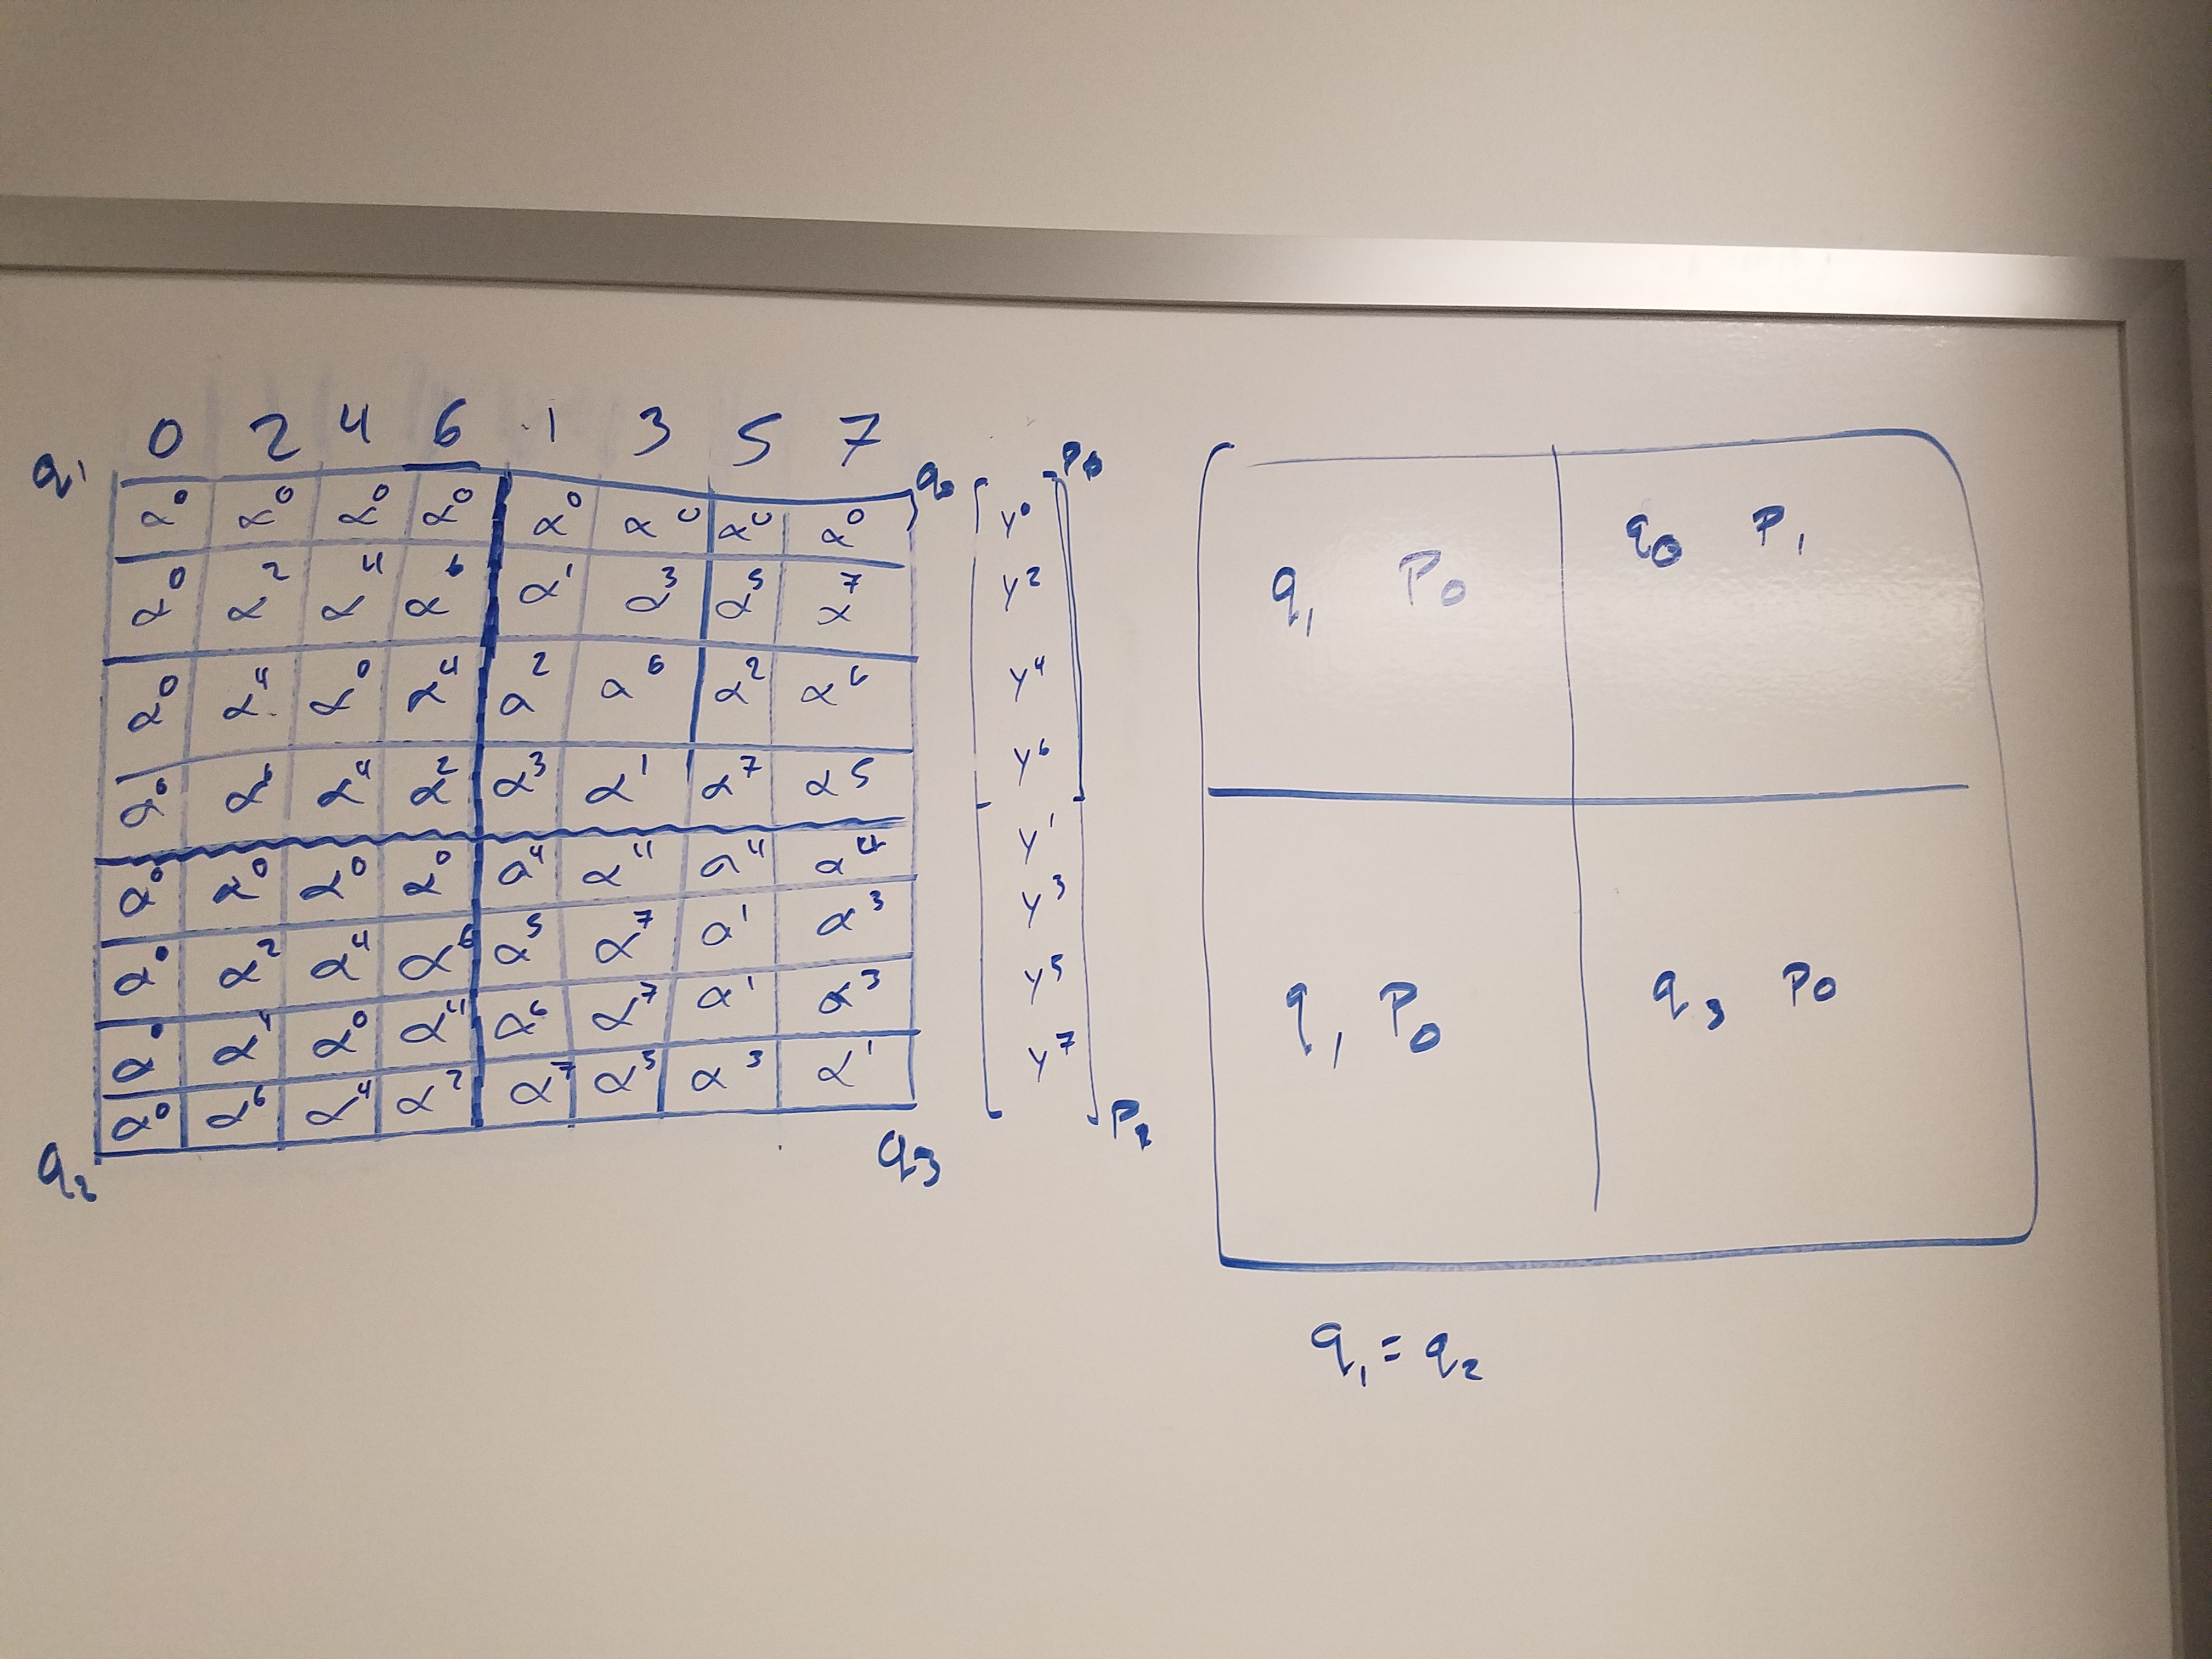 0 2 4 6 1 3 5 7
q₁ q₀ P₀
α⁰ α⁰ α⁰ α⁰ α⁰ α⁰ α⁰ α⁰
α⁰ α² α⁴ α⁶ α¹ α³ α⁵ α⁷
α⁰ α⁴ α⁰ α⁴ α² α⁶ α² α⁶
α⁰ α⁶ α⁴ α² α³ α¹ α⁷ α⁵
α⁰ α⁰ α⁰ α⁰ α⁴ α⁴ α⁴ α⁴
α⁰ α² α⁴ α⁶ α⁵ α⁷ α¹ α³
α⁰ α⁴ α⁰ α⁴ α⁶ α⁷ α¹ α³
α⁰ α⁶ α⁴ α² α⁷ α⁵ α³ α¹
q₂ q₃ P₂
y⁰
y²
y⁴
y⁶
y¹
y³
y⁵
y⁷
q₁ P₀ q₀ P₁
q₁ P₀ q₃ P₀
q₁ = q₂